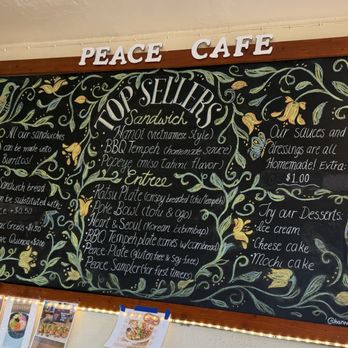 PEACE CAFE
TOP SELLERS
Sandwich
Hanoi (vietnamese style)
BBQ Tempeh (homemade sauce)
Popeye (miso tahini flavor)
Entree
Katsu Plate (crispy breaded tofu/tempeh)
Poke Bowl (tofu & ogo)
Heart & Seoul (Korean bibimbap)
BBQ Tempeh plate (comes w/cornbread)
Peace Plate (gluten free & soy free)
Peace Sampler (for first timers)
All our sandwiches
can be made into
Burritos!
Sandwich bread
can be substituted with
Rice +$0.50
Our sauces and
dressings are all
Homemade! Extra:
$1.00
Try our Desserts:
Ice cream
Cheese cake
Mochi cake